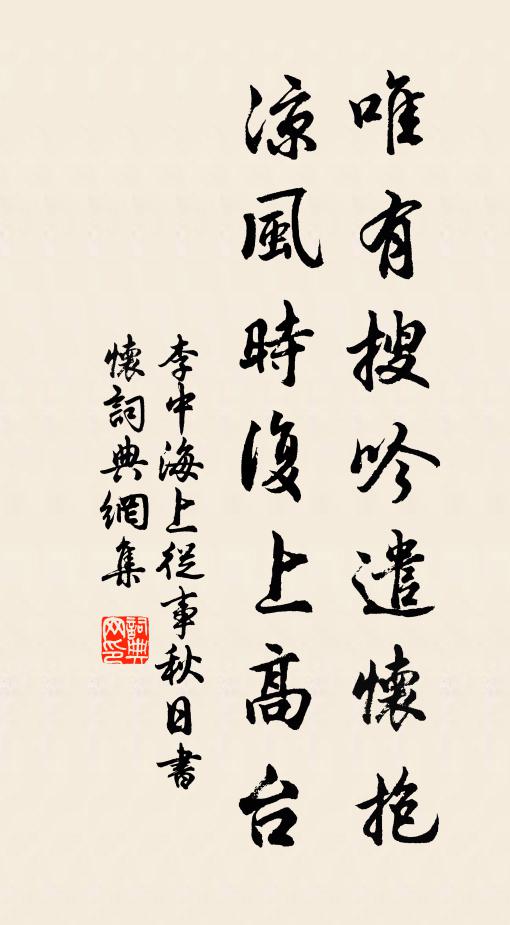 唯有搜吟遣懷抱
涼風時復上高台
李中海上從事秋日書
懷詞典網集
詞典
网印